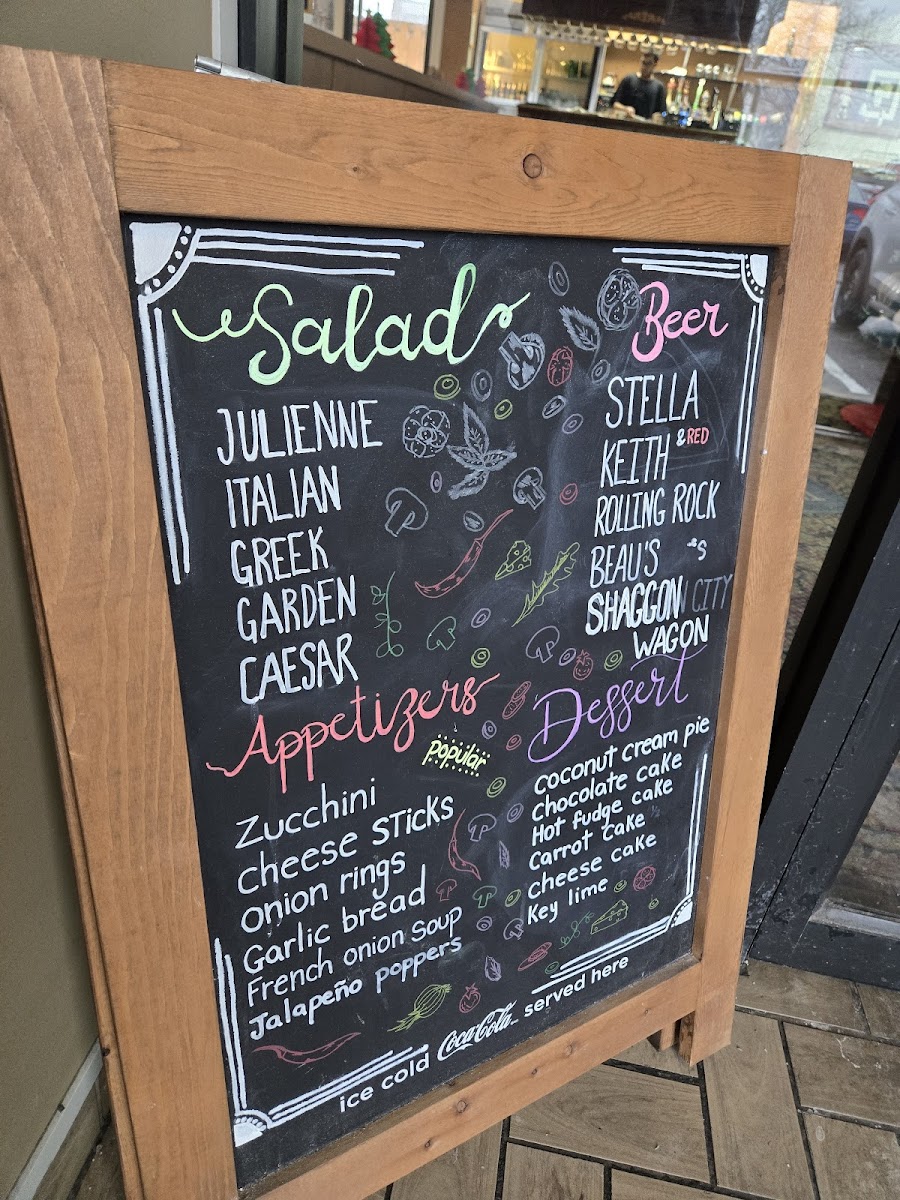 Salad
JULIENNE
ITALIAN
GREEK
GARDEN
CAESAR
Beer
STELLA
KEITH & RED
ROLLING ROCK
BEAU'S 'S
SHAGGON CITY
WAGON
Appetizers
popular
Zucchini
cheese sticks
onion rings
Garlic bread
French onion soup
Jalapeño poppers
Dessert
coconut cream pie
chocolate cake
Hot fudge cake
carrot cake
cheese cake
Key lime
ice cold Coca-Cola served here